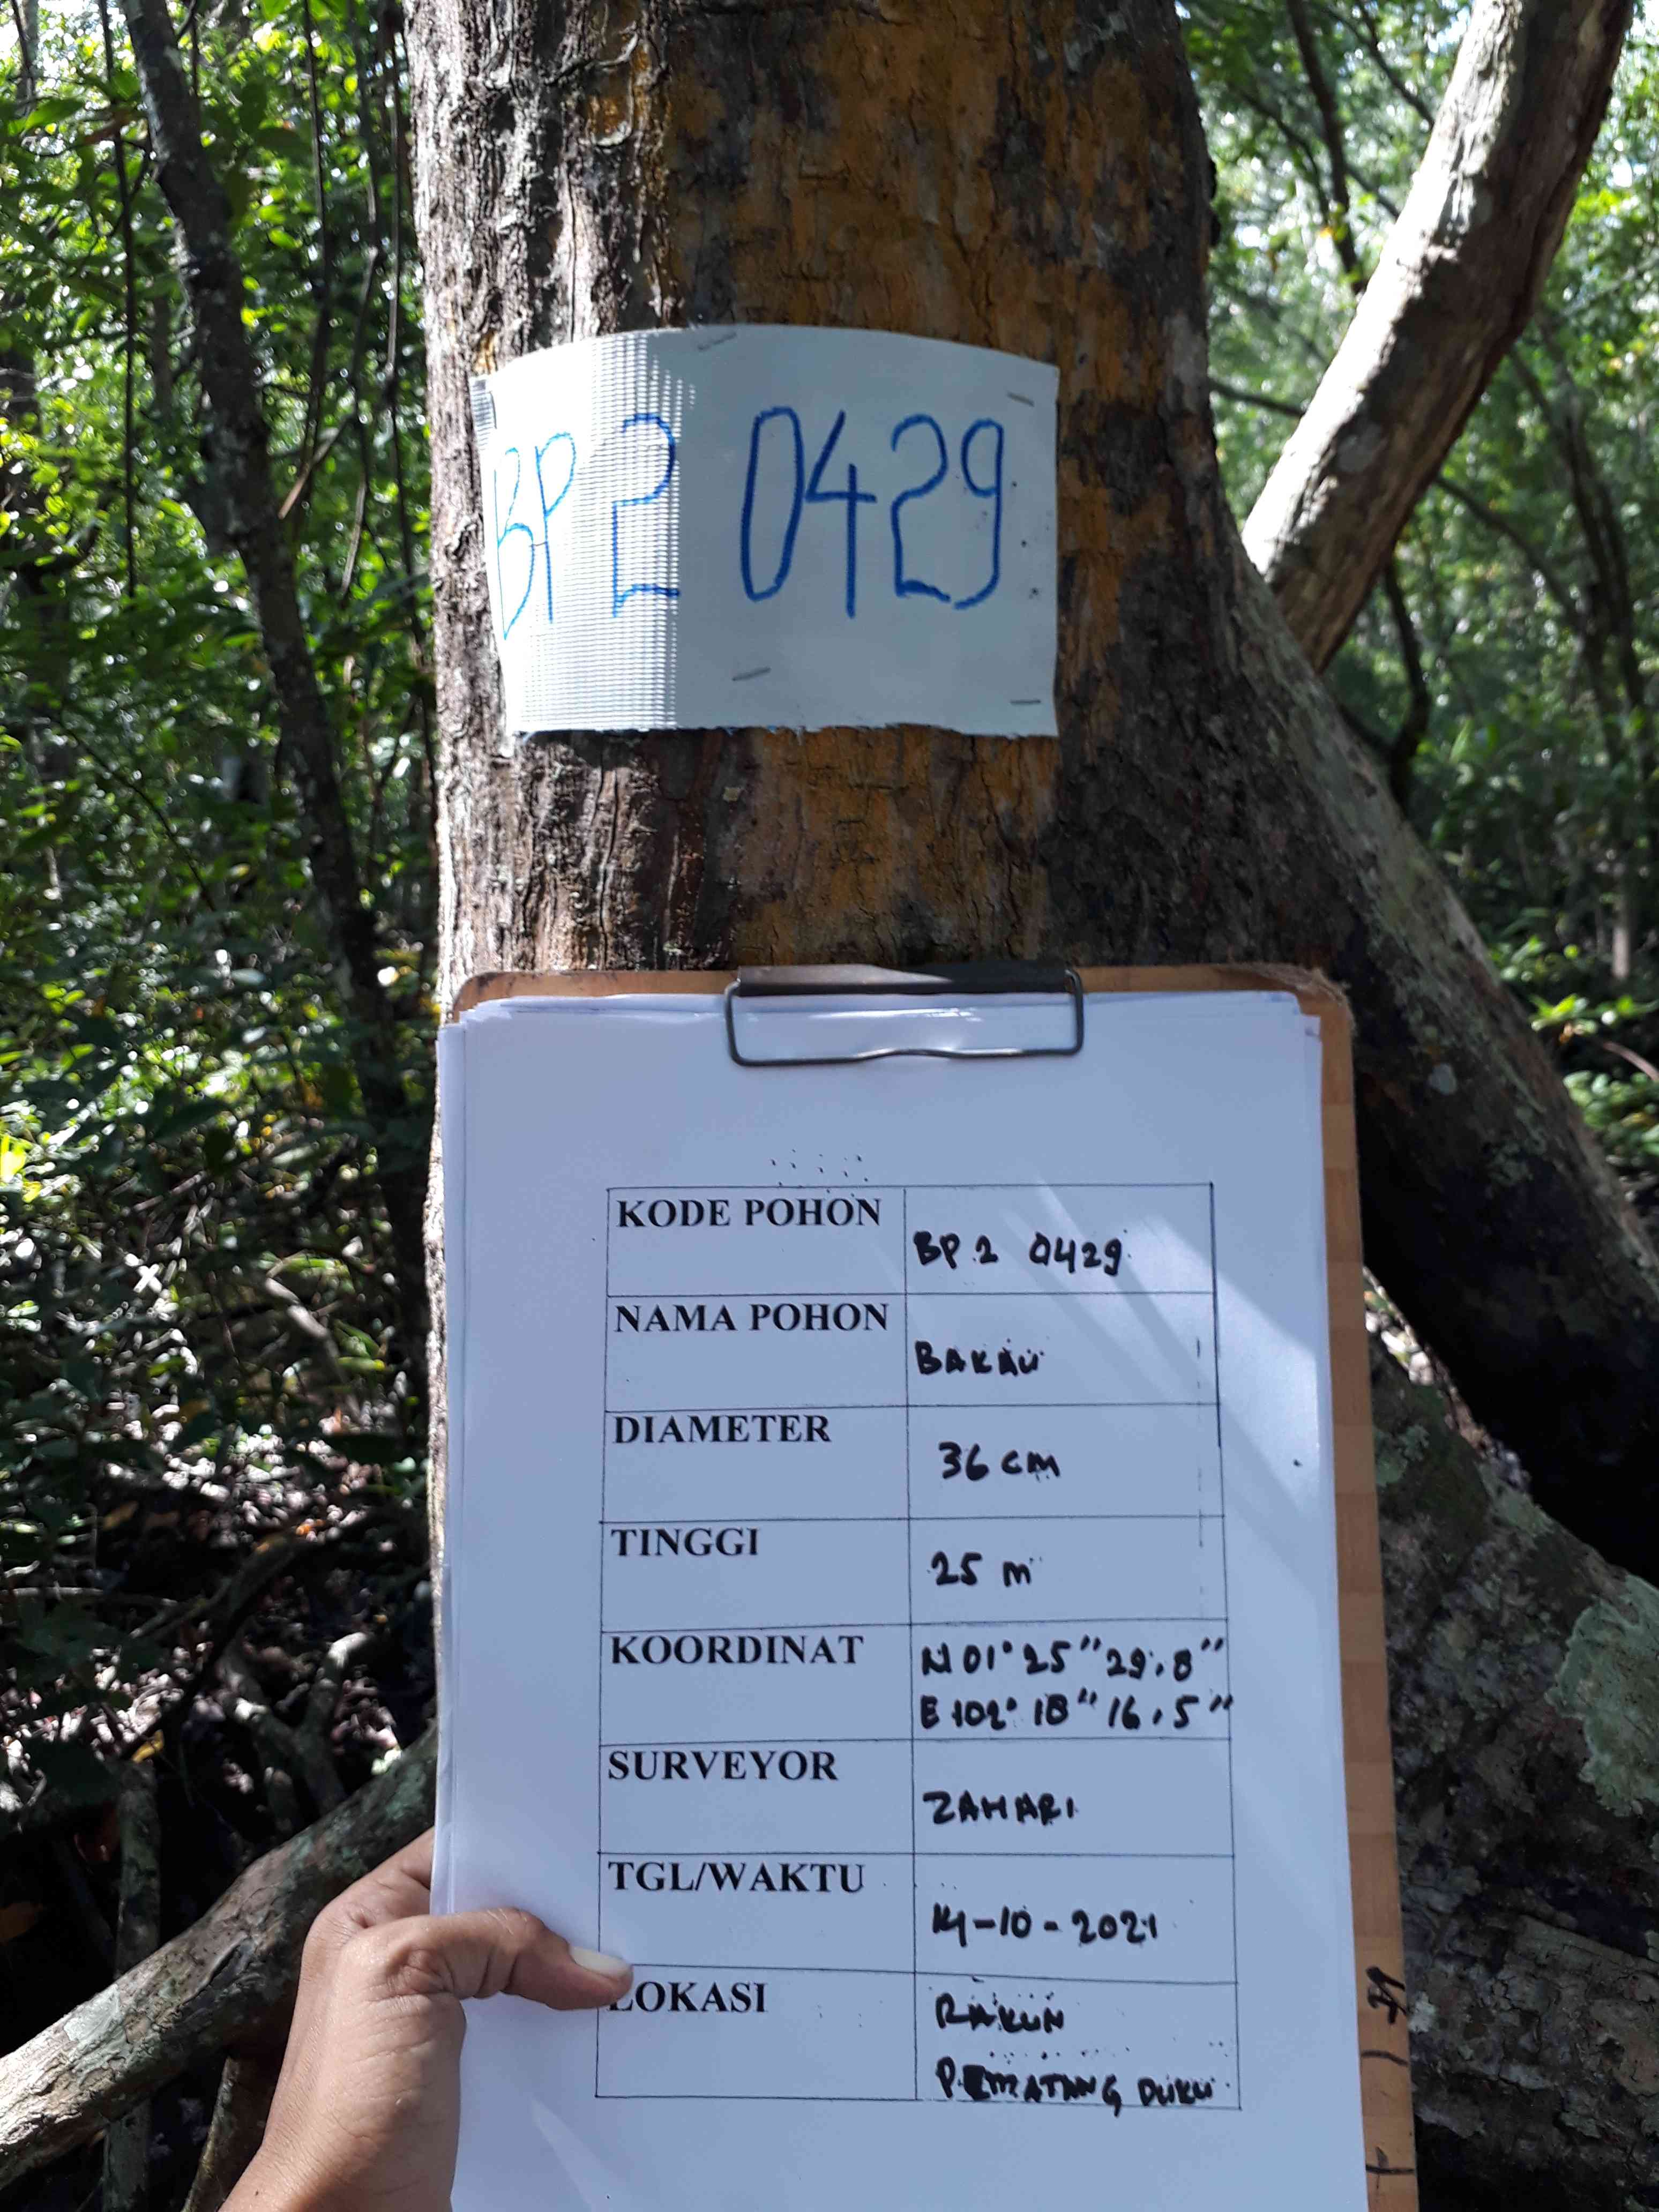 BP 2 0429
KODE POHON
BP 2 0429
NAMA POHON
BAKAU
DIAMETER
36 cm
TINGGI
25 m
KOORDINAT
N 01° 25" 29,8"
E 102° 18" 16,5"
SURVEYOR
ZAHARI
TGL/WAKTU
14-10-2021
LOKASI
RAKUN
PEMATANG DUKU